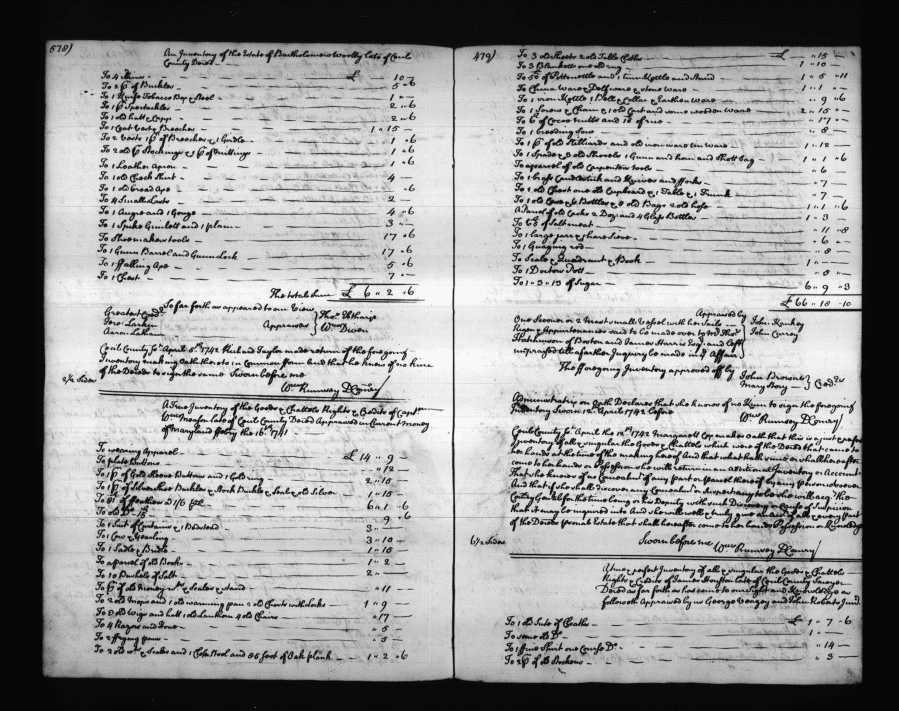 578)
An Inventory of the Estate of Bartholomew Woolly late of Cecil
County Deced
To 4 — £ 10 —
To 2 pr of Buckles — 5 "6
To 1 Knife Tobacco Box & Steel — 1 —
To 1 pr Spectackles — 2 "6
To 1 old hatt & Capp — 2 "6
To 1 Coat Vest & Breeches — 1 " 15 —
To 2 Vests 1 pr of Breeches & 1 Girdle — 1 "6
To 2 old pr Stockings & 1 pr of — 1 "6
To 1 Leather Apron — 1 "6
To 1 old Check Shirt — 4 —
To 1 old broad Axe — "6
To 4 Small Lasts — 2 —
To 1 Augre and 1 Gouge — 4 "6
To 1 Spike Gimlett and 1 plain — 3 "
To Shoemakers tools — 17 "6
To 1 Gunn Barrel and Gunn Lock — 17 "6
To 1 falling Axe — 5 "6
To 1 Chest — 7 "
The total Sum £ 6 " 2 "6
So far forth as appeared to our View
Greatest Credrs
Aaron Latham
Appraisors
Wm
Cecil County Sc April 5th 1742 Richard Taylor made return of the foregoing
Inventory making Oath thereto in Common form And that he knew of no kinn
of the Deced to sign the same Sworn before me
Wm Rumsey D Comry
2½ Sides
A True Inventory of the Goods & Chattels Rights & Credits of Capt
Wm late of Cecil County Deced Appraised in Current Money
of Maryland the 16th 1741
To wearing Apparel — £ 14 " 9 —
To plate Buttons — " 12 —
To 1 pr of Gold Sleeve Buttons and 1 Gold — 2 " 10 —
To 1 pr of Silver Shoe Buckles & Stock Buckle & Seal & old Silver — 1 " 10 —
To of feathers a 1/6 — 6 " 1 "6
To old Do — 9 "6
To 1 Suit of Curtains & 1 Bedstead — 3 " —
To 1 Cow & Yearling — 3 " 10 —
To 1 Sadle & Bridle — 1 " 10 —
To a parcel of old Books — 1 " 2 —
To 10 Bushels of Salt — 2 " —
To pr of old Money & Scales & Stand — " 11 —
To 2 old and 1 old warming pan 2 old Chests with Locks — 1 " 9 —
To old Wigs and hatt 1 old Lanthorn 4 old Chairs — " 17 —
To 4 Razors and Hone — " 5 —
To 2 frying pans — " 5 —
To 2 old & Scales and 1 Close Stool and 86 foot of Oak plank — 1 " 2 "6
479)
To 3 old Sheets 2 old Table Cloths — £ " 15 —
To 3 Blanketts one old rug — 1 " 10 —
To of Pottmettle and 1 Kettle and Stand — 1 " 5 "11
To China Ware & Delfware & Stone Ware — 1 " 1 " —
To 1 iron Kettle 1 Bell & Collar & Earthen Ware — " 9 "6
To 1 Screw & Chain & 1 old Cart and some wooden Ware — 2 " 15 "
To of Cocoa nutts and of rice — " 17 "
To 1 breeding Sow — " 8 —
To 1 pr of old Stilliards and old iron ware — 1 " 12 —
To 1 Spade & 2 old Shovels 1 Gunn and horn and Shott bag — 1 " 1 "6
To a parcel of old Carpenters tools — " 6
To 1 brass Candlestick and Knives and forks — " 7 —
To 1 old Chest one old Cupboard & 1 Table & 1 Trunk — " 7 —
To 1 old Case & Bottles & 8 old Bags 2 old — 1 " 1 "6
A Parcel of old Casks 2 and 4 Glass Bottles — 1 " 3 —
To of Salt meat — " 11 "8
To 1 large Jarr & 1 hair Sieve — " 6 "
To 1 Guaging rod — " 8 "
To Scale & Quadrant & Book — 1 " —
To 1 — " 5 —
To 1 " 3 " 13 of Sugar — 6 " 9 "3
£ 66 " 18 "10
Appraised by
John Hankey
John Currey
One Scooner or 2 Mast small Vessel with her Sails
Riggn & Appurtenances said to be made over to Mr Thos
Hutchinson of Boston and James Harris Esqr and left
unpraised till a farther Inquiry be made in ye Affair
The foregoing Inventory approved off by
John
Mary
Credrs
Administratrix on Oath Declares that she knows of no Kinn to sign the foregoing
Inventory Sworn April 1742 before
Wm Rumsey D Comry
Cecil County Sc April the 19th 1742 Margarett makes Oath that this is a just & perfect
Inventory of all & singular the Goods & Chattels which were of the Deced that came to
her hands at the time of the making hereof And that what hath since or shall hereafter
come to her hands or Possession she will return in an additional Inventory or Account
That she knows of no Concealmt of any part or parcel thereof by any person whosoever
And that if she shall discover any Concealmt or Suspect any to be she will acqt the
Comry Genl for the time being or his Deputy with such Discovery & Cause of Suspicion
that it may be inquired into And she will well & truly give an acct of all & every part
of the Deceds personal Estate that shall hereafter come to her hands Possession or Knowledge
Sworn before me
Wm Rumsey D Comry
6½ Sides
A true & perfect Inventory of all & singular the Goods & Chattels
Rights & Credits of James late of Cecil County
Deced as far forth as has come to our sight and Knowledge as
followeth Appraised by us George Veazey and John Roberts
To 1 old Sute of Cloaths — £ 1 " 7 "6
To some old Do — 1 " —
To 1 fine Shirt one Course Do — " 14 —
To 2 pr of old Stockens — " 3 —